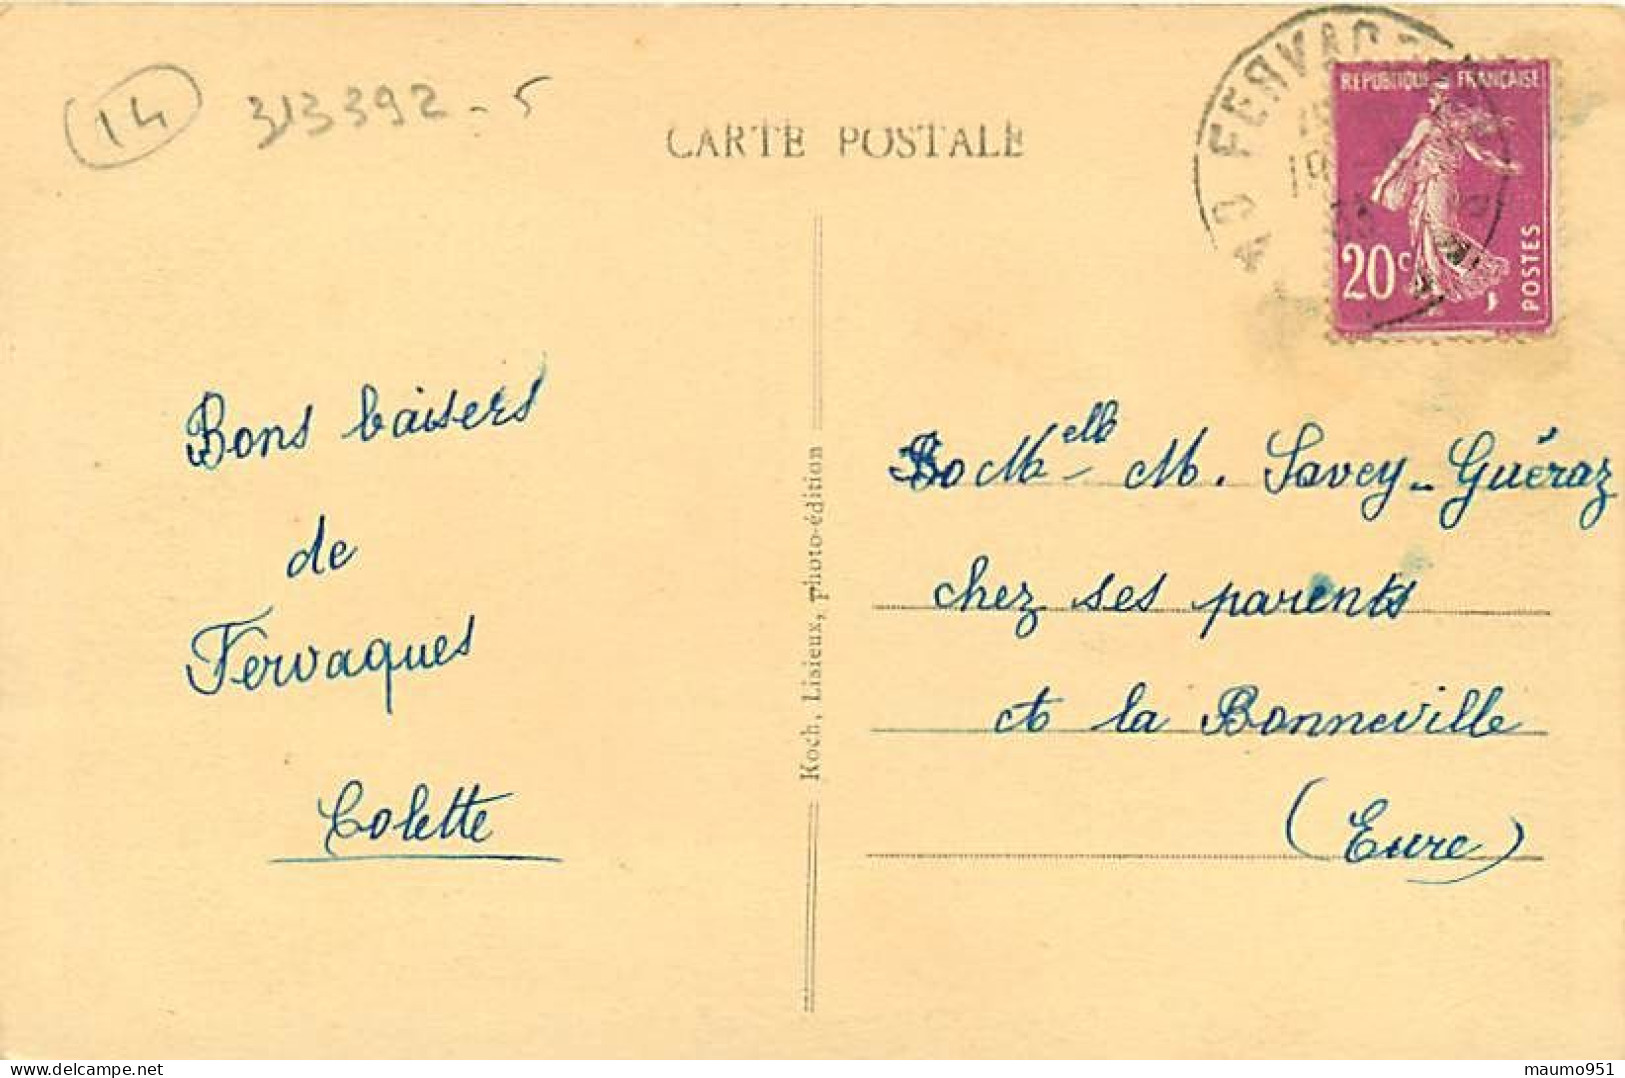 14
313392-5
CARTE POSTALE
FERVAQ
REPUBLIQUE FRANÇAISE
20c
POSTES
Bons baisers
de
Fervaques
Colette
Koch, Lisieux, photo-édition
Melle M. Savey-Guéraz
chez ses parents
à la Bonneville
(Eure)
maumo951